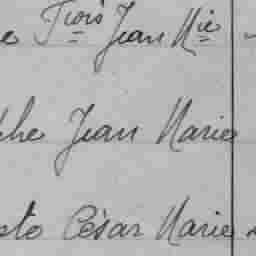 e Fçois Jean Mie
the Jean Marie
sto César Marie